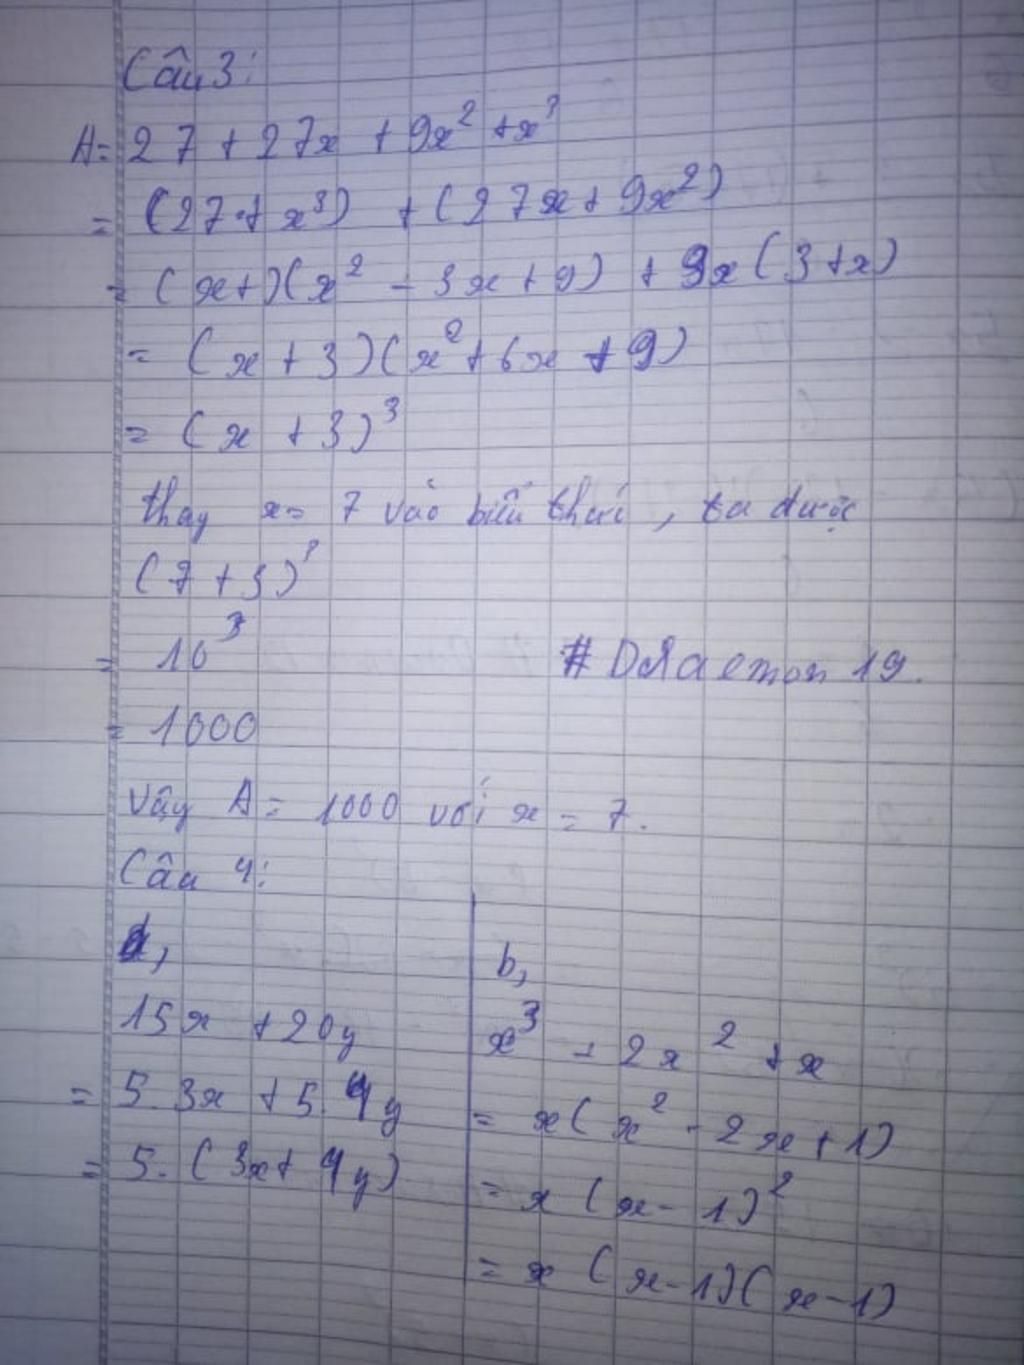 Câu 3:
A = 27 + 27x + 9x² + x³
= (27 + x³) + (27x + 9x²)
= (x+)(x² - 3x + 9) + 9x(3+x)
= (x + 3)(x² + 6x + 9)
= (x + 3)³
thay x = 7 vào biểu thức, ta được
(7 + 3)³
= 10³
# Doraemon 19.
= 1000
Vậy A = 1000 với x = 7.
Câu 4:
a,
15x + 20y
= 5. 3x + 5. 4y
= 5. (3x + 4y)
b,
x³ - 2x² + x
= x(x² - 2x + 1)
= x(x - 1)²
= x(x - 1)(x - 1)